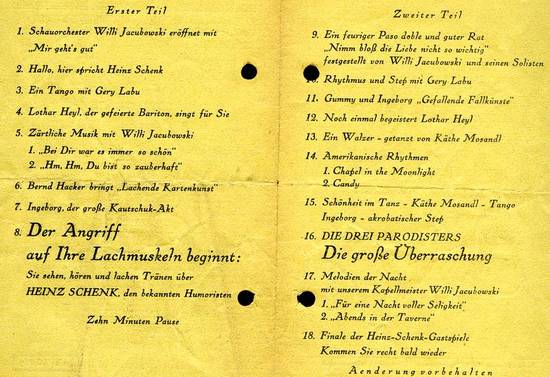 Erster Teil
1. Schauorchester Willi Jacubowski eröffnet mit
„Mir geht's gut"
2. Hallo, hier spricht Heinz Schenk
3. Ein Tango mit Gery Labu
4. Lothar Heyl, der gefeierte Bariton, singt für Sie
5. Zärtliche Musik mit Willi Jacubowski
1. „Bei Dir war es immer so schön"
2. „Hm, Hm, Du bist so zauberhaft"
6. Bernd Hacker bringt „Lachende Kartenkunst"
7. Ingeborg, der große Kautschuk-Akt
8. Der Angriff
auf Ihre Lachmuskeln beginnt:
Sie sehen, hören und lachen Tränen über
HEINZ SCHENK, den bekannten Humoristen
Zehn Minuten Pause
Zweiter Teil
9. Ein feuriger Paso doble und guter Rat
„Nimm bloß die Liebe nicht so wichtig"
festgestellt von Willi Jacubowski und seinen Solisten
10. Rhythmus und Step mit Gery Labu
11. Gummy und Ingeborg „Gefallende Fallkünste"
12. Noch einmal begeistert Lothar Heyl
13. Ein Walzer - getanzt von Käthe Mosandl
14. Amerikanische Rhythmen
1. Chapel in the Moonlight
2. Candy
15. Schönheit im Tanz - Käthe Mosandl - Tango
Ingeborg - akrobatischer Step
16. DIE DREI PARODISTERS
Die große Überraschung
17. Melodien der Nacht
mit unserem Kapellmeister Willi Jacubowski
1. „Für eine Nacht voller Seligkeit"
2. „Abends in der Taverne"
18. Finale der Heinz-Schenk-Gastspiele
Kommen Sie recht bald wieder
Aenderung vorbehalten